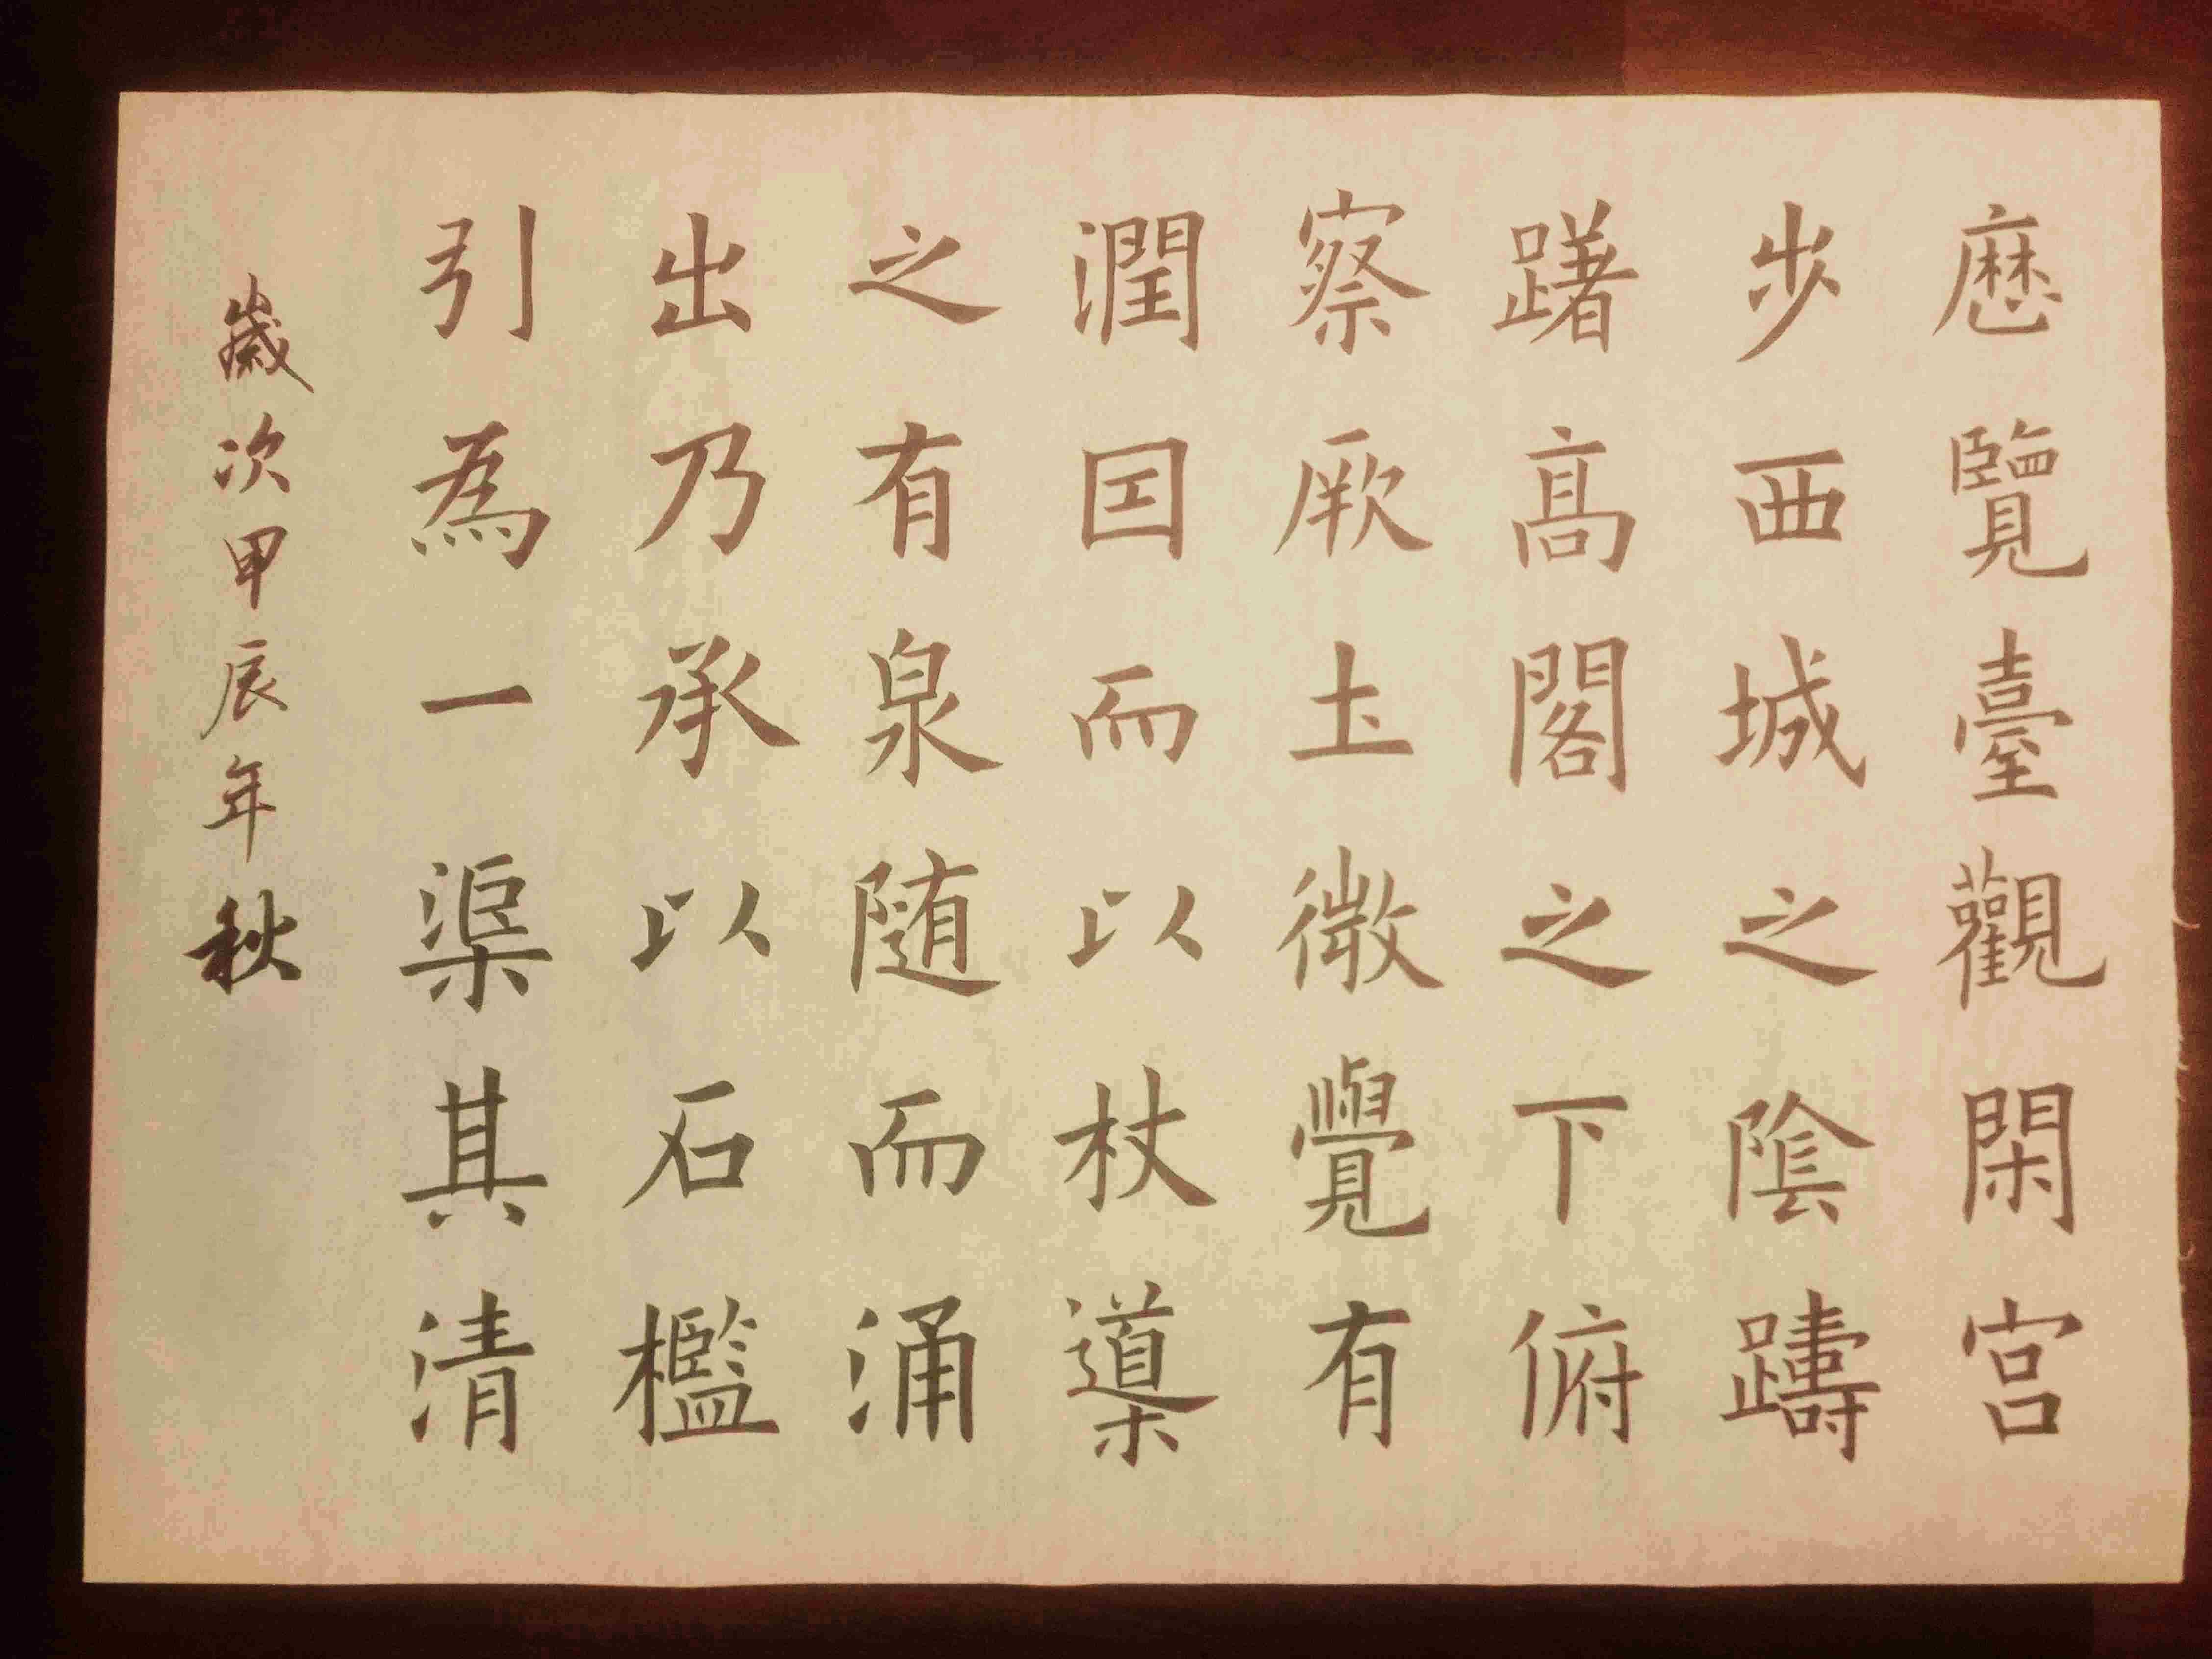 歷覽臺觀閑宮
步西城之陰躊
躇高閣之下俯
察厥土微覺有
潤因而以杖導
之有泉隨而涌
出乃承以石檻
引為一渠其清
歲次甲辰年秋